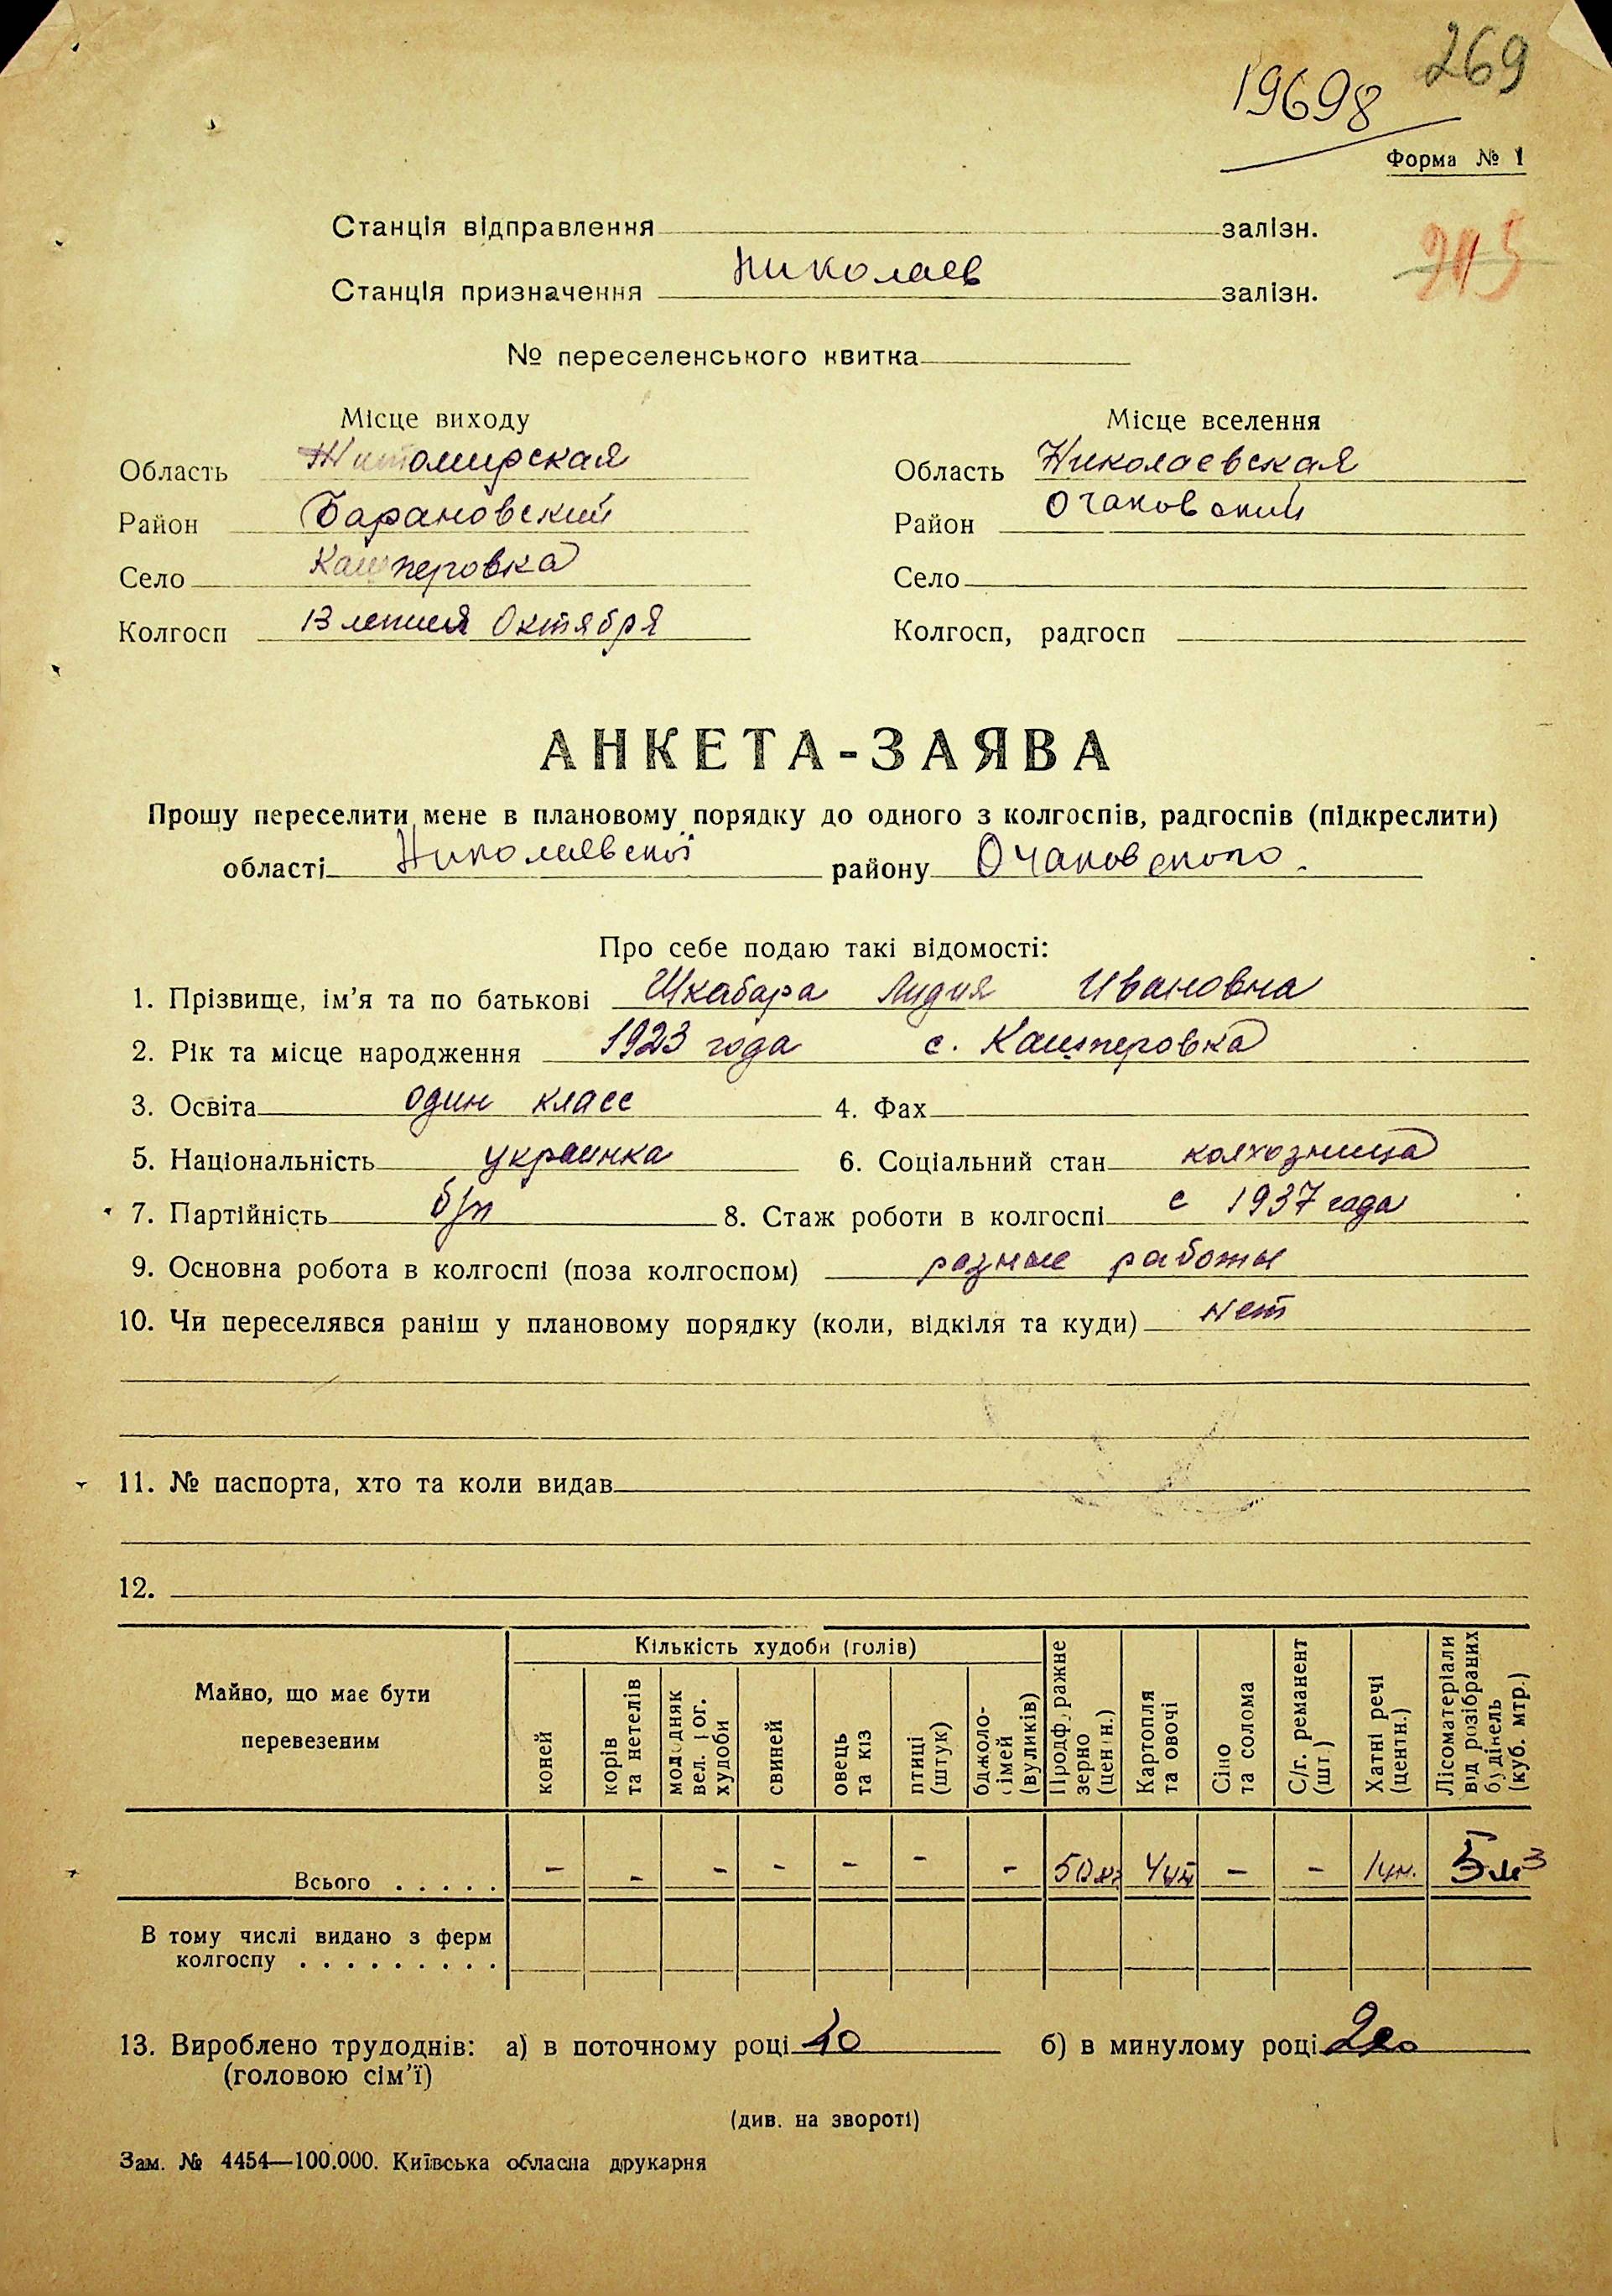 269
19698
Форма № 1
Станція відправлення залізн.
Станція призначення Николаев залізн.
№ переселенського квитка
Місце виходу
Область Житомирская
Район Барановский
Село Кашперовка
Колгосп 13 летия Октября
Місце вселення
Область Николаевская
Район Очаковский
Село
Колгосп, радгосп
АНКЕТА-ЗАЯВА
Прошу переселити мене в плановому порядку до одного з колгоспів, радгоспів (підкреслити)
області Николаевской району Очаковского.
Про себе подаю такі відомості:
1. Прізвище, ім'я та по батькові Шкабара Лидия Ивановна
2. Рік та місце народження 1923 года с. Кашперовка
3. Освіта один класс 4. Фах
5. Національність украинка 6. Соціальний стан колхозница
7. Партійність б/п 8. Стаж роботи в колгоспі с 1937 года
9. Основна робота в колгоспі (поза колгоспом) разные работы
10. Чи переселявся раніш у плановому порядку (коли, відкіля та куди) нет
11. № паспорта, хто та коли видав
12.
Майно, що має бути
перевезеним
Кількість худоби (голів)
коней
корів
та нетелів
молодняк
вел. рог.
худоби
свиней
овець
та кіз
птиці
(штук)
бджоло-
сімей
(вуликів)
Продфуражне
зерно
(центн.)
Картопля
та овочі
Сіно
та солома
С/г. реманент
(шт.)
Хатні речі
(центн.)
Лісоматеріали
від розібраних
будівель
(куб. мтр.)
Всього . . . . . - - - - - - - 50 кг 4 цн - - 1 цн. 5 м³
В тому числі видано з ферм
колгоспу . . . . . . . . .
13. Вироблено трудоднів: а) в поточному році 10 б) в минулому році
(головою сім'ї)
(див. на звороті)
Зам. № 4454—100.000. Київська обласна друкарня